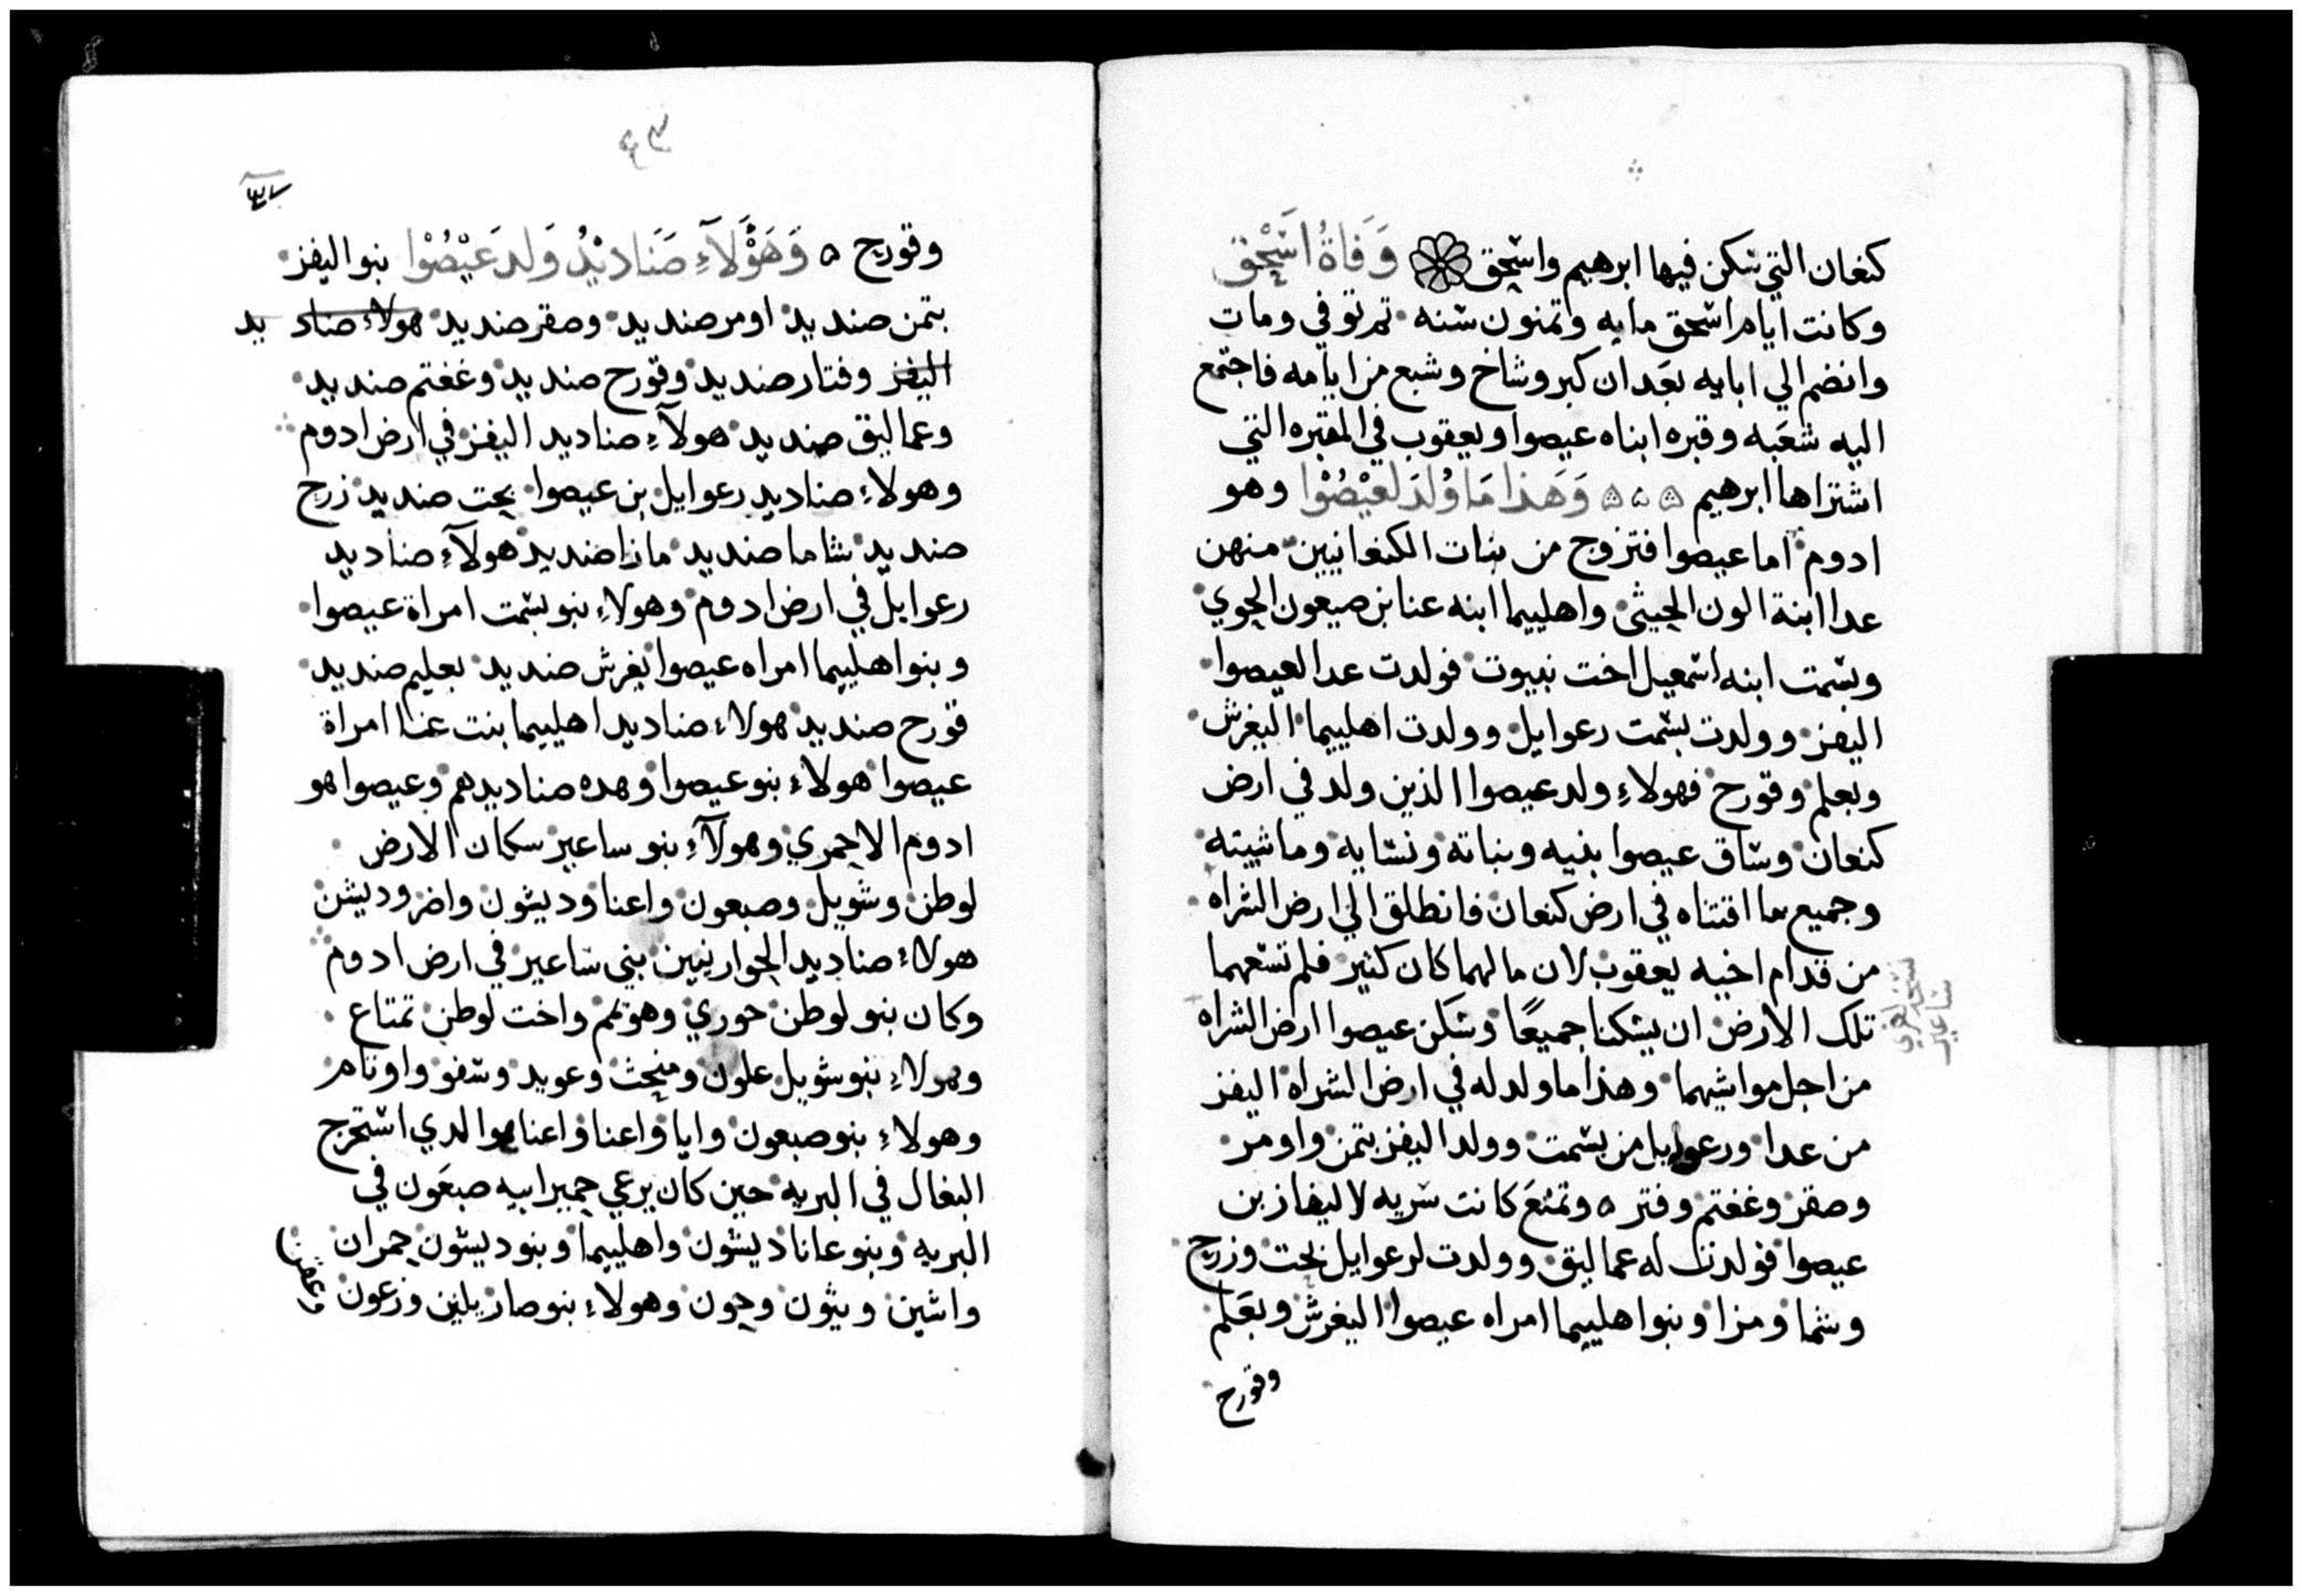 كنعان التي سكن فيها ابرهيم واسحق وَفَاةُ اسْحٰق
وكانت ايام اسحق مايه وثمنون سنه ثم توفي ومات
وانضم الي ابايه بعَد ان كبر وشاخ وشبع من ايامه فاجتمع
اليه شعَبه وقبره ابناه عيصوا ويعقوب في المقبره التي
اشتراها ابرهيم ۵ ۵ ۵ وَهَذا مَا وُلدَ لعيْصُوْا وهو
ادوم اما عيصوا فتزوج من بنات الكنعانيين منهن
عدا ابنة الون الحيثي واهليبما ابنه عنا بن صبعون الحوي
وبسمت ابنه اسمعيل اخت نبيوت فولدت عدا لعيصوا
اليفز وولدت بسمت رعوايل وولدت اهليبما اليغرش
وبعلم وقورح فهولاءِ ولد عيصوا الذين ولد في ارض
كنعان وساق عيصوا بنيه وبناته ونسايه وماشيته
وجميع ما اقتناه في ارض كنعان فانطلق الي ارض الشراه
من قدام اخيه يعقوب لان مالهما كان كثير فلم تسعهما
تلك الارض ان يسكنا جميعًا وسَكن عيصوا ارض الشراه
من اجل مواشيهما وهذا ما ولد له في ارض الشراه اليفز
من عدا ورعوايل من بسمت وولد اليفز بتمن واومر
وصقر وغفتم وفتر ۵ وتمنَع كانت سريه لاليفاز بن
عيصوا فولدت له عماليق وولدت لرعوايل نحت وزرح
وشما ومزا وبنوا هليبما امراه عيصوا اليغرش وبعَلم
وقورح
ساعير
٤٣
وقورح ۵ وَهَؤُلآءِ صَنَادِيْدُ وَلد عَيْصُوْا بنو اليفز
بتمن صنديد اومر صنديد وصقر صنديد هولاء صناديد
اليفز وفتار صنديد وقورح صنديد وغفتم صنديد
وعماليق صنديد هولآءِ صناديد اليفز في ارض ادوم
وهولاءِ صناديد رعوايل بن عيصوا نحت صنديد زرح
صنديد شاما صنديد مازا صنديد هولآءِ صناديد
رعوايل في ارض ادوم وهولاءِ بنو بسمت امراة عيصوا
وبنوا هليبما امراه عيصوا يغرش صنديد بعليم صنديد
قورح صنديد هولاء صناديد اهليبما بنت عنا امراة
عيصوا هولاءِ بنو عيصوا وهده صناديدهم وعيصوا هو
ادوم الاحمري وهولآءِ بنو ساعير سكان الارض
لوطن وشوبل وصبعون واعنا وديشون واضر وديشن
هولاء صناديد الحوارنيين بني ساعير في ارض ادوم
وكان بنو لوطن حوري وهومم واخت لوطن تمتاع
وهولاءِ بنو شوبل علون ومنحث وعويد وسفو واونام
وهولاءِ بنو صبعون وايا واعنا واعنا هوا لدي استخرج
البغال في البريه حين كان يرعي حمير ابيه صبعَون في
البريه وبنو عانا ديشون واهليبما وبنو ديشون حمران
واشبن ويثون وحون وهولاءِ بنو صار بلين وزعون